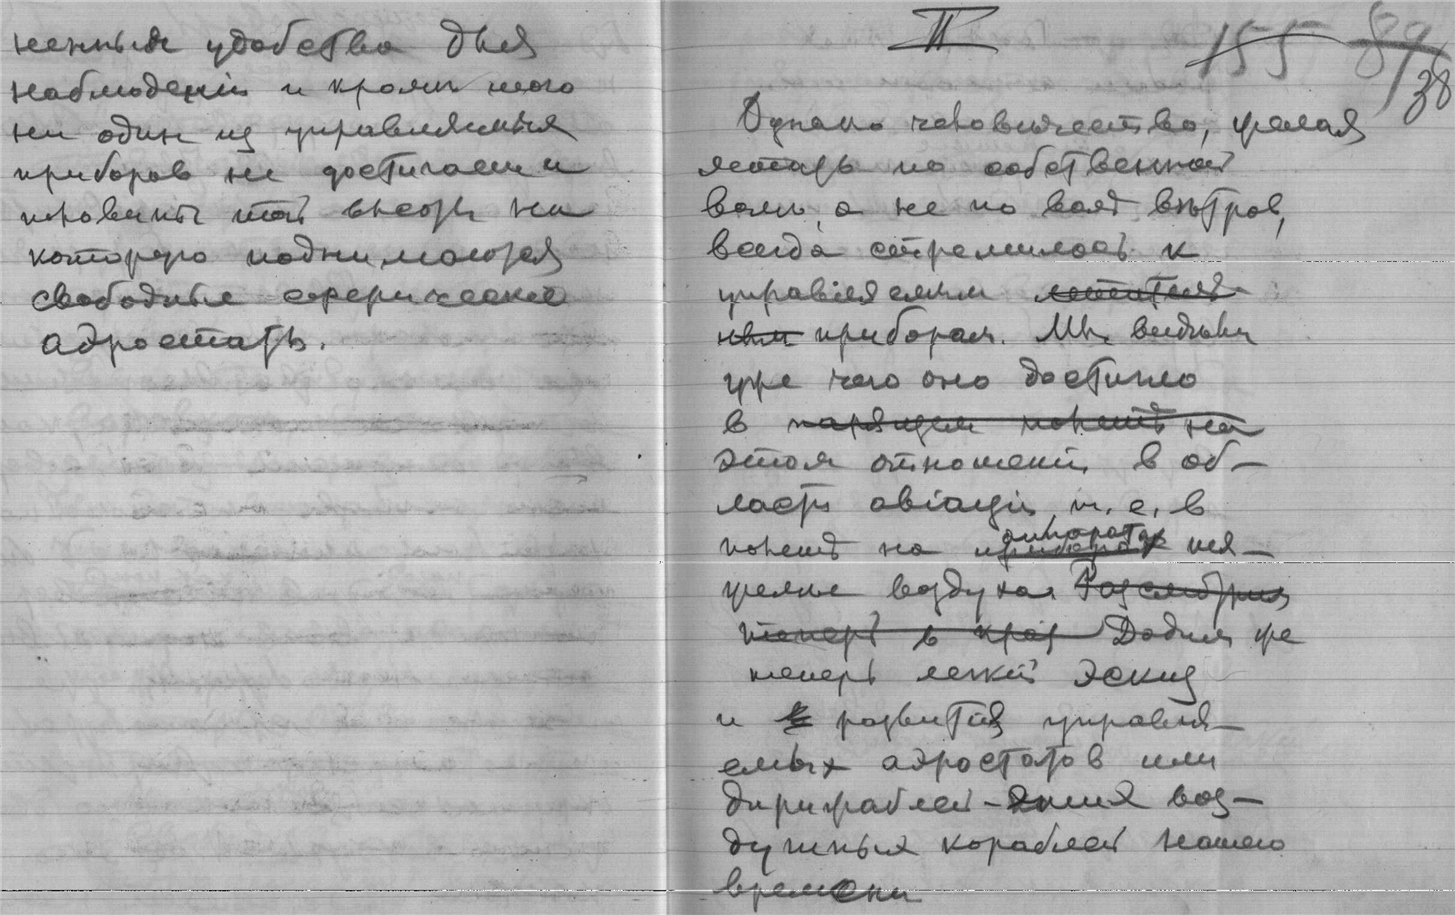 ненныя удобства для
наблюденій и кромѣ того
ни один из управляемых
приборов не достигает и
половины той высоты на
которую поднимаются
свободные сферическіе
аэростаты.
II
155 89
38
Однако человѣчество, желая
летать по собственной
волѣ а не по волѣ вѣтров,
всегда стремилось к
управляемым летатель
ным приборам. Мы видѣли
уже чего оно достигло
в парящем полетѣ на
этом отношеніи в об-
ласти авіаціи, т. е. в
аппаратах
полетѣ на приборах тя-
желѣе воздуха. Разсмотрим
теперь в крат Дадим же
теперь легкій эскиз
и развития управля-
емых аэростатов или
дирижаблей - этих воз-
душных кораблей нашего
времени